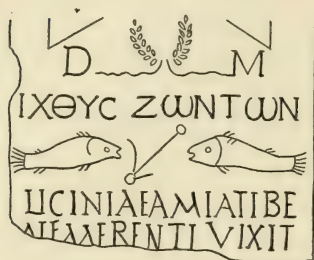 D M
ΙΧΘΥC ΖωΝΤωΝ
LICINIAEAMIATIBE
NEMERENTI VIXIT